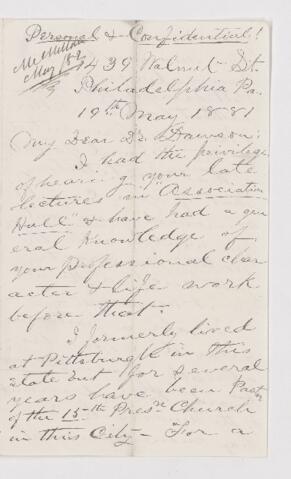 Personal & Confidential!
McMillan
May 1882
1439 Walnut St.
Philadelphia Pa.
19th May 1881
My Dear Dr. Dawson:
I had the privilege
of hearing your late
lectures in "Association
Hall" & have had a gen
eral knowledge of
your professional char
acter & life work
before that.
I formerly lived
at Pittsburgh in this
State but for several
years have been Pastor
of the 15th Presn Church
in this City - For a